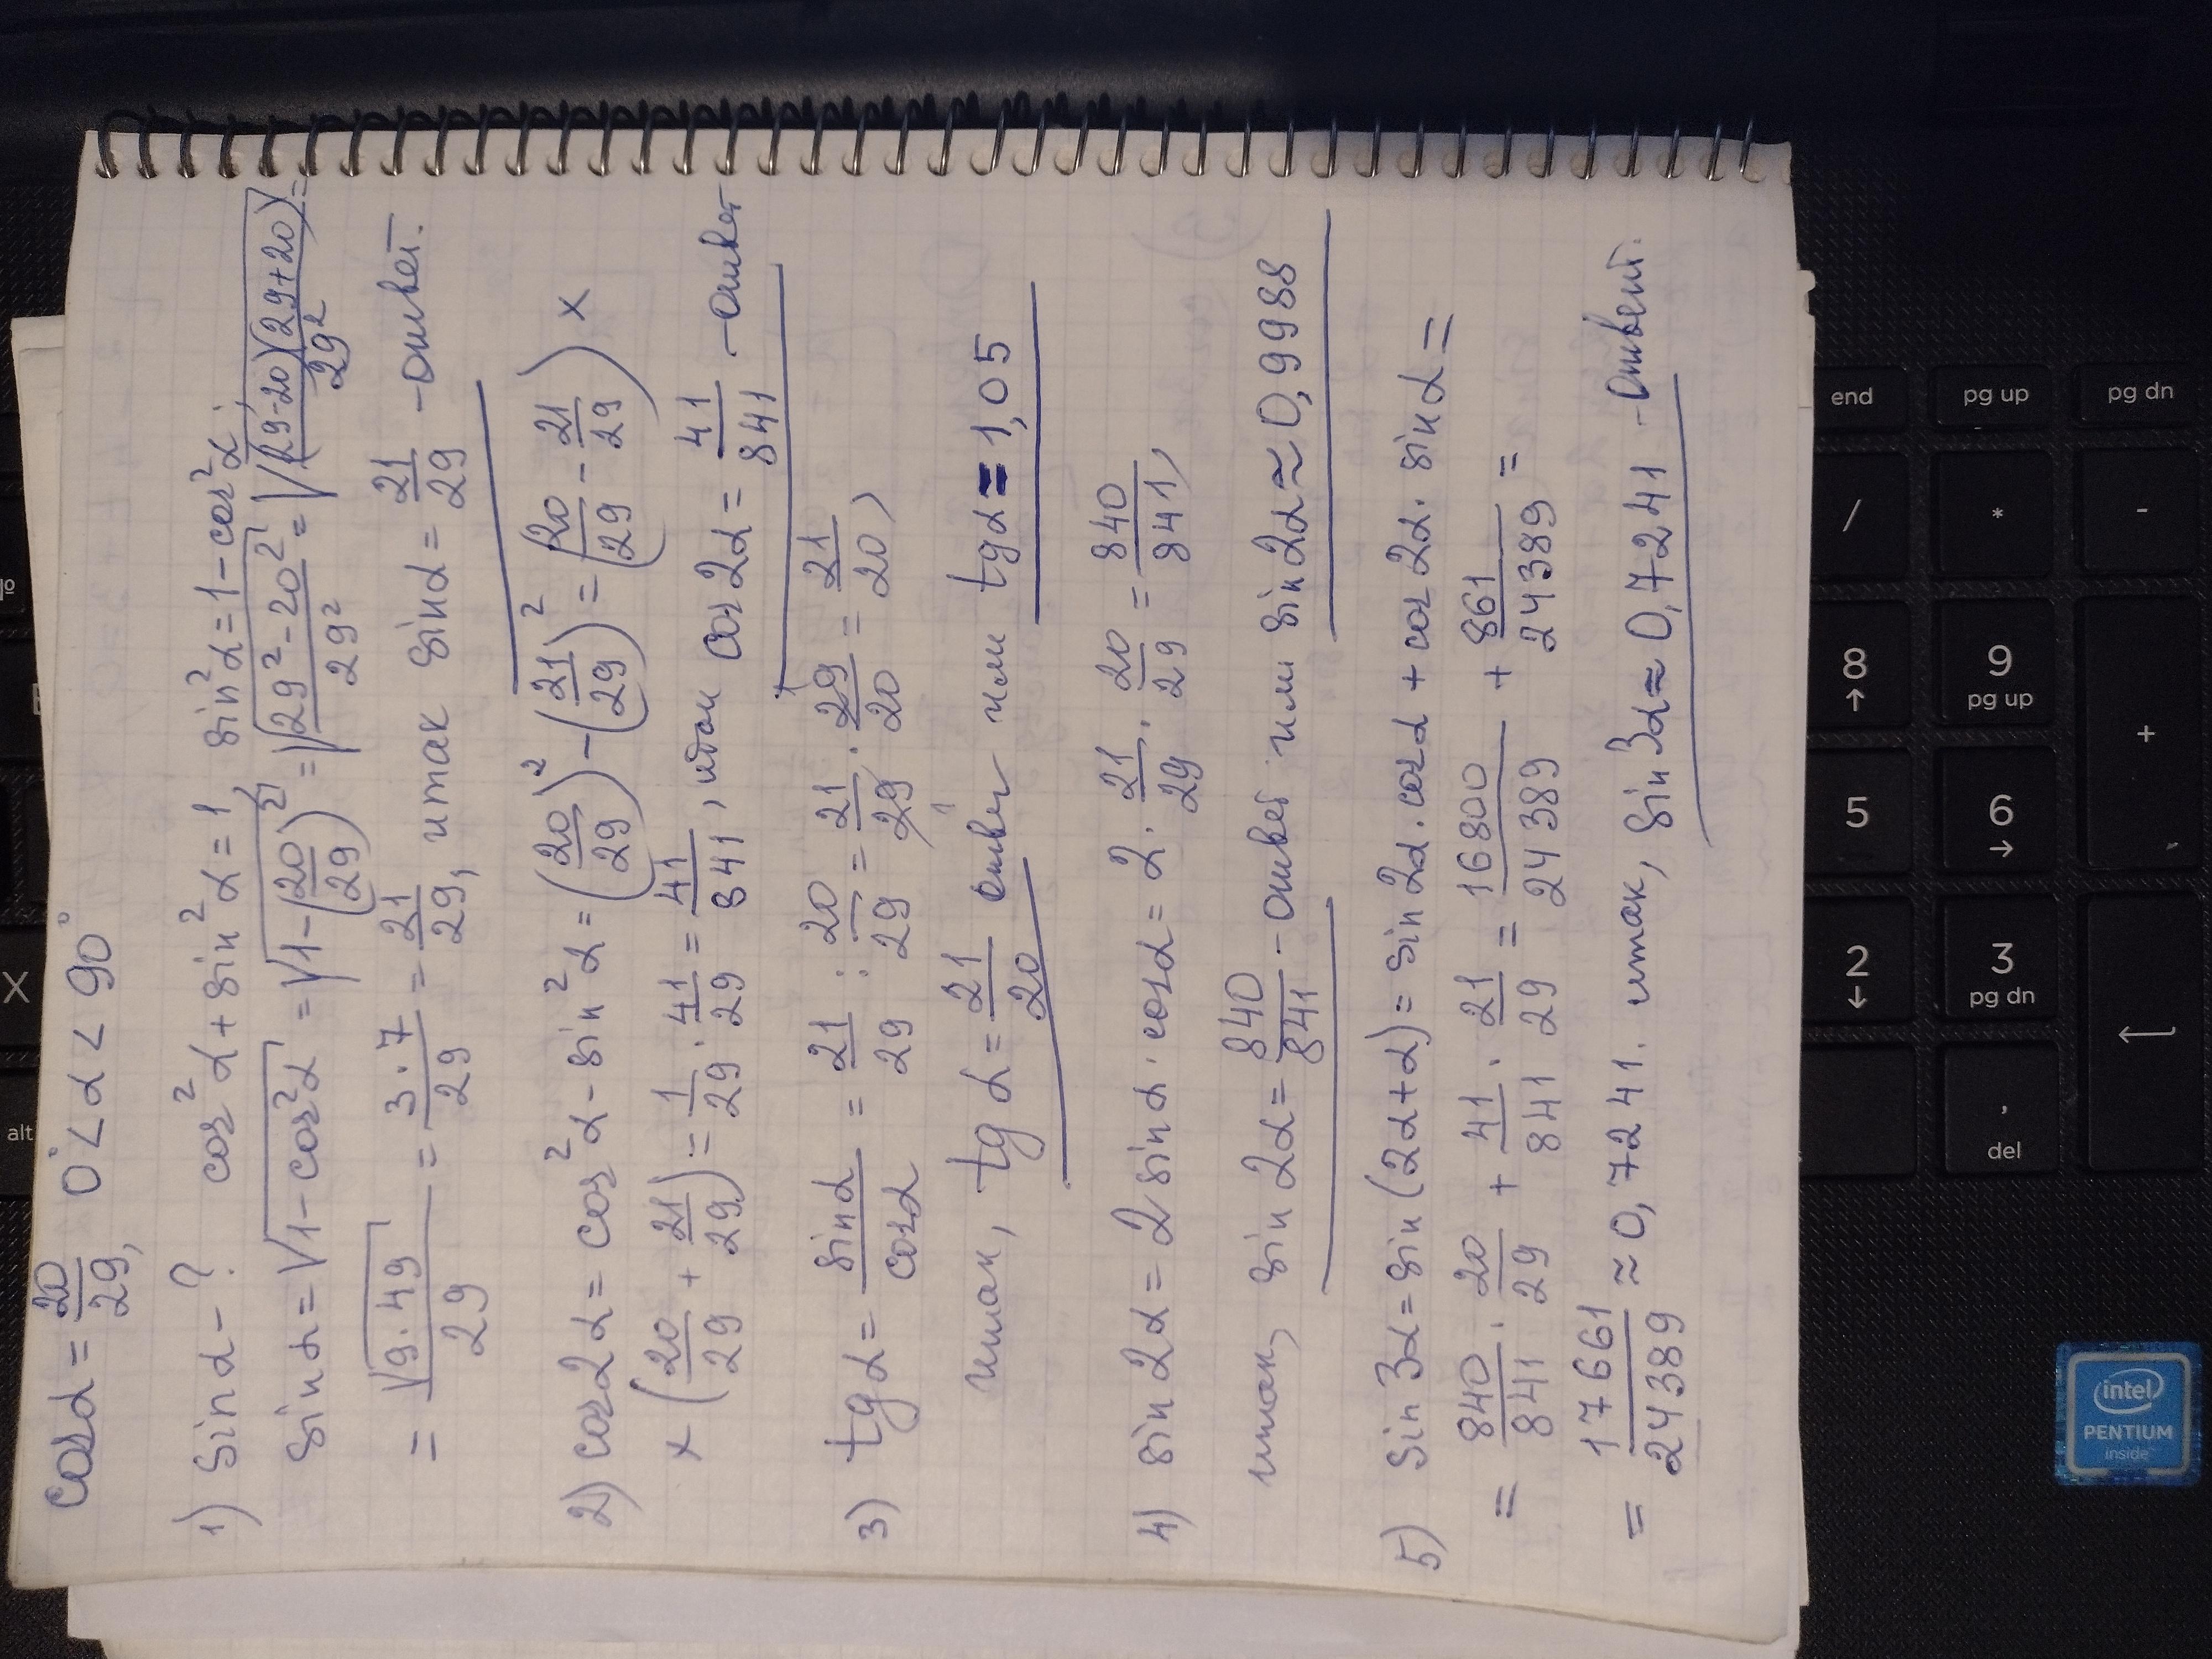 cosα = 20/29, 0° < α < 90°
1) sinα - ? cos²α + sin²α = 1, sin²α = 1 - cos²α;
sinα = √(1 - cos²α) = √(1 - (20/29)²) = √((29² - 20²)/29²) = √((29-20)(29+20)/29²) =
= √(9·49)/29 = 3·7/29 = 21/29, итак sinα = 21/29 - ответ.
2) cos2α = cos²α - sin²α = (20/29)² - (21/29)² = (20/29 - 21/29) ×
× (20/29 + 21/29) = 1/29 · 41/29 = 41/841, итак cos2α = 41/841 - ответ
3) tgα = sinα/cosα = 21/29 : 20/29 = 21/29 · 29/20 = 21/20,
итак, tgα = 21/20 ответ или tgα = 1,05
4) sin2α = 2sinα·cosα = 2· 21/29 · 20/29 = 840/841,
итак, sin2α = 840/841 - ответ или sin2α ≈ 0,9988
5) sin3α = sin(2α+α) = sin2α·cosα + cos2α·sinα =
= 840/841 · 20/29 + 41/841 · 21/29 = 16800/24389 + 861/24389 =
= 17661/24389 ≈ 0,7241. итак, sin3α ≈ 0,7241 - ответ.
alt
X
end
pg up
pg dn
/
*
-
8
↑
9
pg up
+
5
6
→
2
↓
3
pg dn
,
del
intel
PENTIUM
inside